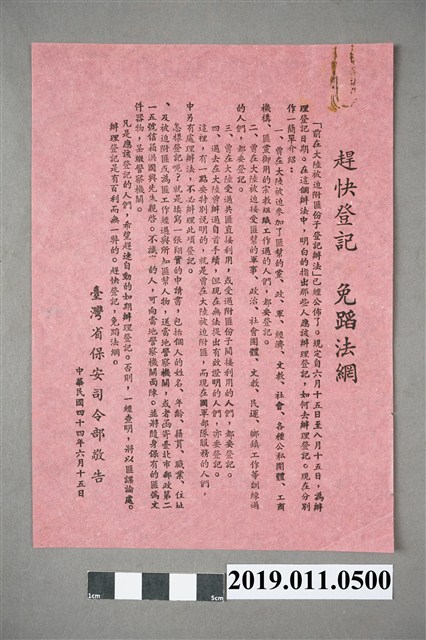 趕快登記　免蹈法網
「前在大陸被迫附匪份子登記辦法」已經公佈了。規定自六月十五日至八月十五日，爲辦
理登記日期。在這個辦法中，明白的指出那些人應該辦理登記，如何去辦理登記。現在分別
作一簡單介紹：
一、曾在大陸被迫參加了匪幫的黨、政、軍、經濟、文教、社會、各種公私團體、工商
機構、匪黨御用的宗教組織工作過的人們，都要登記。
二、曾在大陸被迫接受匪幫的軍事、政治、社會團體、文教、民運、鄉鎮工作等訓練過
的人們，都要登記。
三、曾在大陸受過共匪直接利用，或受過附匪份子間接利用的人們，都要登記。
四、過去在大陸曾辦過自首手續，但現在無法提出有效證明的人們，亦要登記。
這裡，有一點要特別說明的，就是曾在大陸被迫附匪，而現在國軍部隊服務的人們，
中另有處理辦法，不必辦理此項登記。
怎樣登記呢？就是填寫一張翔實的申請書，包括個人的姓名、年齡、籍貫、職業、住址
、及被迫附匪或爲匪工作經過與所知匪幫人物，送當地警察機關，或者函寄臺北市郵政第二
一五號信箱洪國興先生親啓。不識字的人，可向當地警察機關面陳。並將隨身保有的匪僞文
件器物，呈繳警察機關。
凡是應該登記的人們，希望趕速自動的如期辦理登記。否則，一經查明，將以匪諜論處。
辦理登記是有百利而無一弊的。趕快登記，免蹈法網。
臺灣省保安司令部敬告
中華民國四十四年六月十五日
1cm
5cm
2019.011.0500